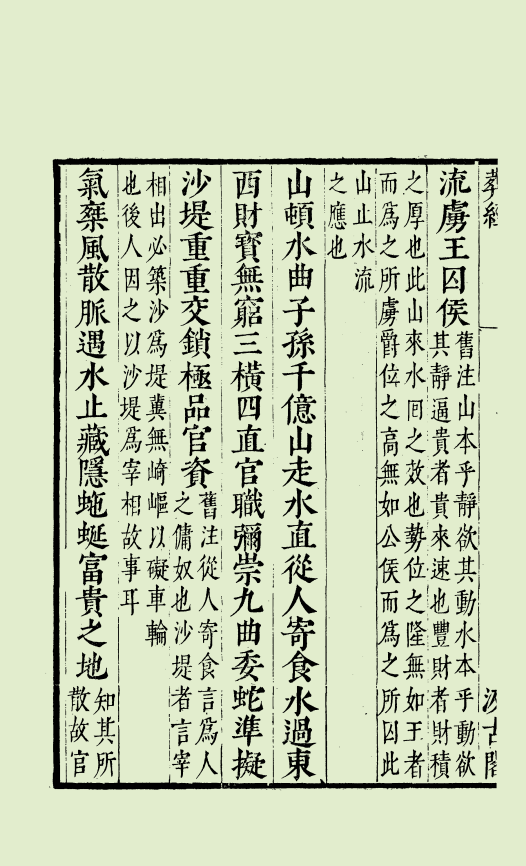 葬經
汲古閣
流虜王囚侯
舊注山本乎靜欲其動水本乎動欲
其靜逼貴者貴來速也豐財者財積
之厚也此山來水囘之效也勢位之隆無如王者
而爲之所虜爵位之高無如公侯而爲之所囚此
山止水流
之應也
山頓水曲子孫千億山走水直從人寄食水過東
西財寳無窮三橫四直官職彌崇九曲委蛇準擬
沙堤重重交鎖極品官資
舊注從人寄食言爲人
之傭奴也沙堤者言宰
相出必築沙爲堤冀無崎嶇以礙車輪
也後人因之以沙堤爲宰相故事耳
氣棄風散脈遇水止藏隱蜿蜒富貴之地
知其所
散故官